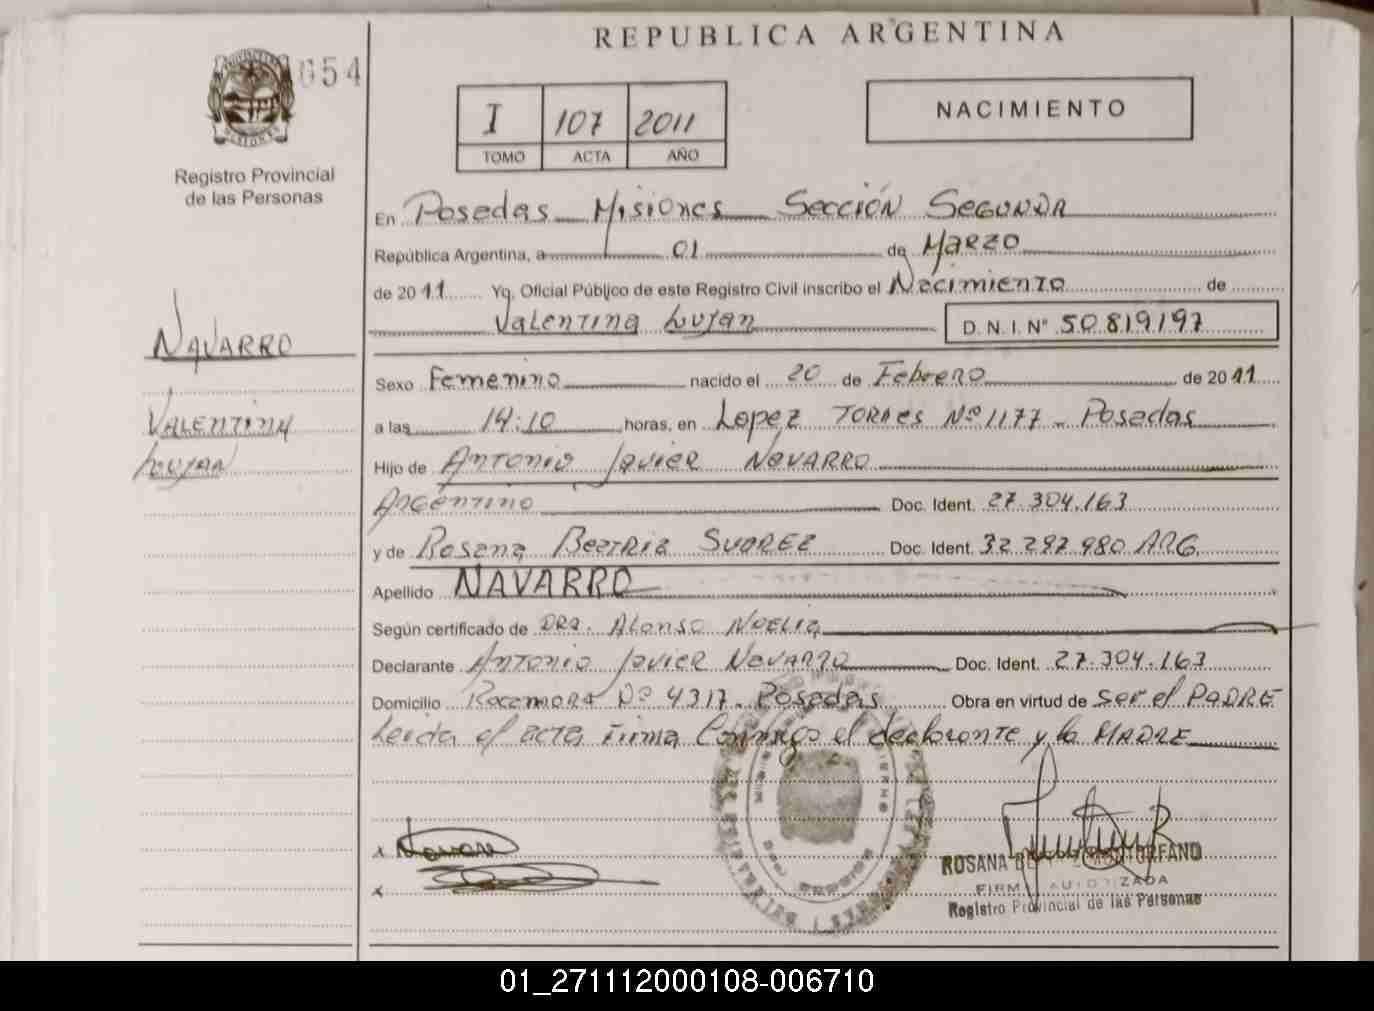 REPUBLICA ARGENTINA
654
I 107 2011
TOMO ACTA AÑO
NACIMIENTO
Registro Provincial
de las Personas
En Posedas Misiones Sección Segunda
República Argentina, a 01 de Marzo
de 2011 Yo, Oficial Público de este Registro Civil inscribo el Nacimiento de
Valentina Lujan D. N. I. Nº 50.819.197
NAVARRO
VALENTINA
Lujan
Sexo Femenino nacido el 20 de Febrero de 2011
a las 14:10 horas, en Lopez Torres Nº 1177 - Posedas
Hijo de Antonio Javier Navarro
Argentino Doc. Ident. 27.304.163
y de Rosana Beatriz Suarez Doc. Ident. 32.297.980 ARG
Apellido NAVARRO
Según certificado de DRA. Alonso Noelia
Declarante Antonio Javier Navarro Doc. Ident. 27.304.163
Domicilio Rocamora Nº 4317 - Posedas Obra en virtud de ser el PADRE
Leida el acta, firma conmigo el declarante y la MADRE
x
x
ROSANA
FIRMA AUTORIZADA
Registro Provincial de las Personas
01_271112000108-006710